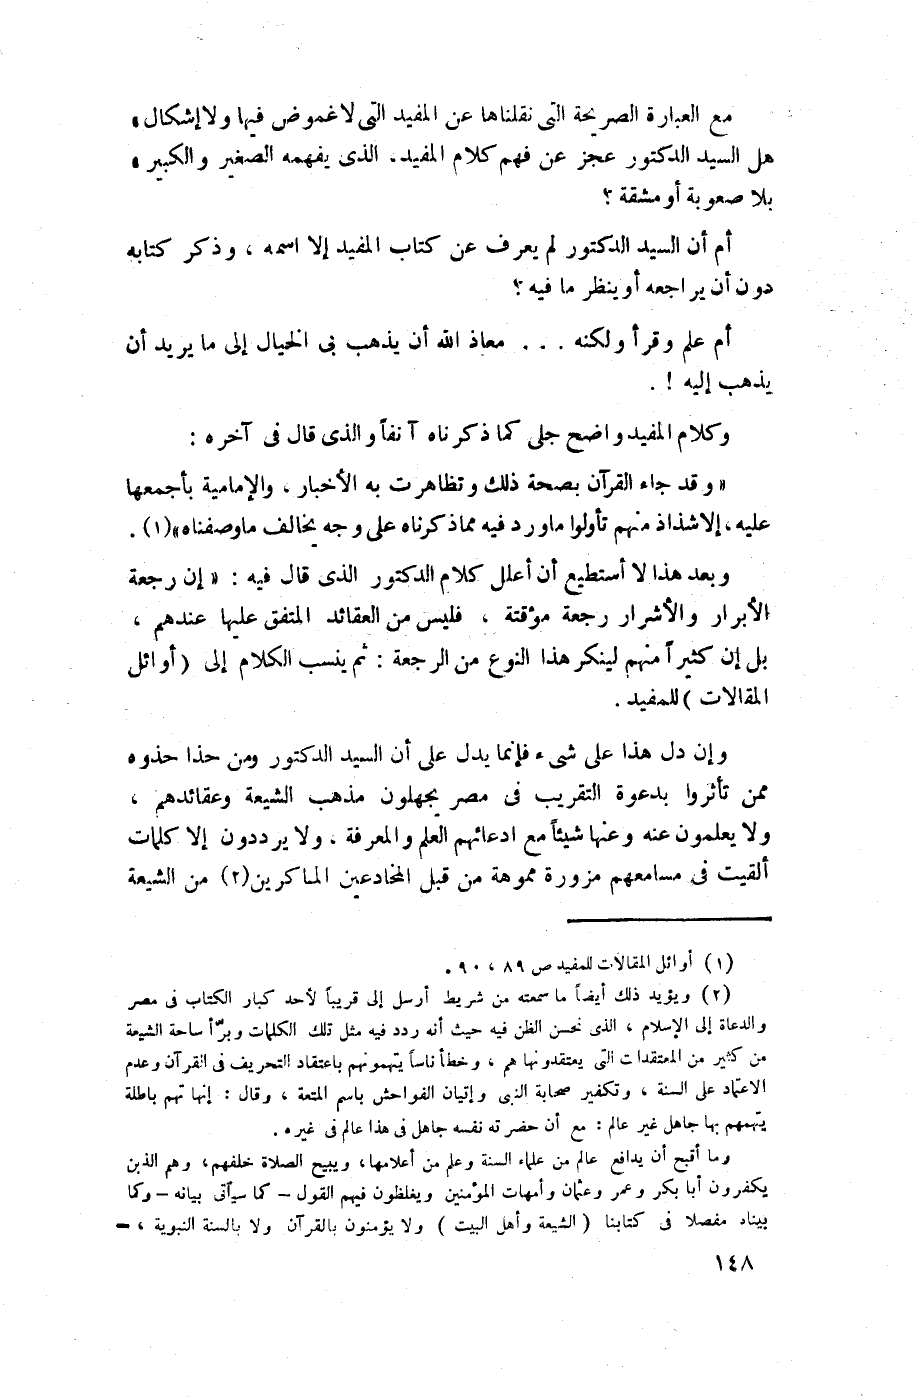 مع العبارة الصريحة التى نقلناها عن المفيد التى لا غموض فيها ولا إشكال ،
هل السيد الدكتور عجز عن فهم كلام المفيد . الذى يفهمه الصغير والكبير ،
بلا صعوبة أو مشقة ؟
أم أن السيد الدكتور لم يعرف عن كتاب المفيد إلا اسمه ، وذكر كتابه
دون أن يراجعه أو ينظر ما فيه ؟
أم علم وقرأ ولكنه . . . معاذ الله أن يذهب بى الخيال إلى ما يريد أن
يذهب إليه ! .
وكلام المفيد واضح جلى كما ذكرناه آنفاً والذى قال فى آخره :
« وقد جاء القرآن بصحة ذلك وتظاهرت به الأخبار ، والإمامية بأجمعها
عليه ، إلا شذاذ منهم تأولوا ما ورد فيه مما ذكرناه على وجه يخالف ما وصفناه »(١) .
وبعد هذا لا أستطيع أن أعلل كلام الدكتور الذى قال فيه : « إن رجعة
الأبرار والأشرار رجعة مؤقتة ، فليس من العقائد المتفق عليها عندهم ،
بل إن كثيراً منهم لينكر هذا النوع من الرجعة : ثم ينسب الكلام إلى ( أوائل
المقالات ) للمفيد .
وإن دل هذا على شىء فإنما يدل على أن السيد الدكتور ومن حذا حذوه
ممن تأثروا بدعوة التقريب فى مصر يجهلون مذهب الشيعة وعقائدهم ،
ولا يعلمون عنه وعنها شيئاً مع ادعائهم العلم والمعرفة ، ولا يرددون إلا كلمات
ألقيت فى مسامعهم مزورة مموهة من قبل المخادعين الماكرين(٢) من الشيعة
(١) أوائل المقالات للمفيد ص ٨٩ ، ٩٠ .
(٢) ويؤيد ذلك أيضاً ما سمعته من شريط أرسل إلى قريباً لأحد كبار الكتاب فى مصر
والدعاة إلى الإسلام ، الذى نحسن الظن فيه حيث أنه ردد فيه مثل تلك الكلمات وبرّأ ساحة الشيعة
من كثير من المعتقدات التى يعتقدونها هم ، وخطأ ناساً يتهمونهم باعتقاد التحريف فى القرآن وعدم
الاعتماد على السنة ، وتكفير صحابة النبى وإتيان الفواحش باسم المتعة ، وقال : إنها تهم باطلة
يتهمهم بها جاهل غير عالم : مع أن حضرته نفسه جاهل فى هذا عالم فى غيره .
وما أقبح أن يدافع عالم من علماء السنة وعلم من أعلامها ، ويبيح الصلاة خلفهم ، وهم الذين
يكفرون أبا بكر وعمر وعثمان وأمهات المؤمنين ويغلظون فيهم القول – كما سيأتى بيانه – وكما
بيناه مفصلا فى كتابنا ( الشيعة وأهل البيت ) ولا يؤمنون بالقرآن ولا بالسنة النبوية ، –
١٤٨